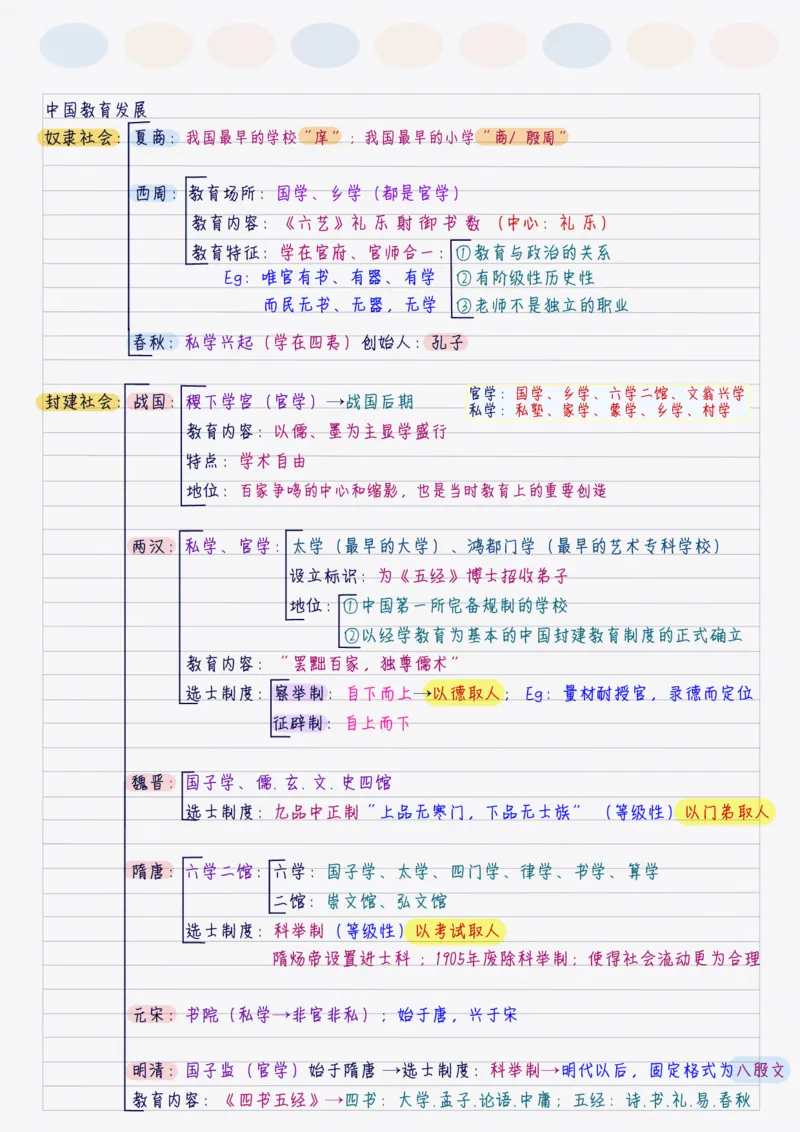 中国教育发展
奴隶社会：夏商：我国最早的学校“庠”；我国最早的小学“商/殷周”
西周：教育场所：国学、乡学（都是官学）
教育内容：《六艺》礼乐射御书数（中心：礼乐）
教育特征：学在官府、官师合一：①教育与政治的关系
Eg：唯官有书、有器、有学 ②有阶级性历史性
而民无书、无器，无学 ③老师不是独立的职业
春秋：私学兴起（学在四夷）创始人：孔子
封建社会：战国：稷下学宫（官学）→战国后期
官学：国学、乡学、六学二馆、文翁兴学
私学：私塾、家学、蒙学、乡学、村学
教育内容：以儒、墨为主显学盛行
特点：学术自由
地位：百家争鸣的中心和缩影，也是当时教育上的重要创造
两汉：私学、官学：太学（最早的大学）、鸿都门学（最早的艺术专科学校）
设立标识：为《五经》博士招收弟子
地位：①中国第一所完备规制的学校
②以经学教育为基本的中国封建教育制度的正式确立
教育内容：“罢黜百家，独尊儒术”
选士制度：察举制：自下而上→以德取人；Eg：量材耐授官，录德而定位
征辟制：自上而下
魏晋：国子学、儒.玄.文.史四馆
选士制度：九品中正制“上品无寒门，下品无士族”（等级性）以门弟取人
隋唐：六学二馆：六学：国子学、太学、四门学、律学、书学、算学
二馆：崇文馆、弘文馆
选士制度：科举制（等级性）以考试取人
隋炀帝设置进士科；1905年废除科举制；使得社会流动更为合理
元宋：书院（私学→非官非私）；始于唐，兴于宋
明清：国子监（官学）始于隋唐→选士制度：科举制→明代以后，固定格式为八股文
教育内容：《四书五经》→四书：大学.孟子.论语.中庸；五经：诗.书.礼.易.春秋